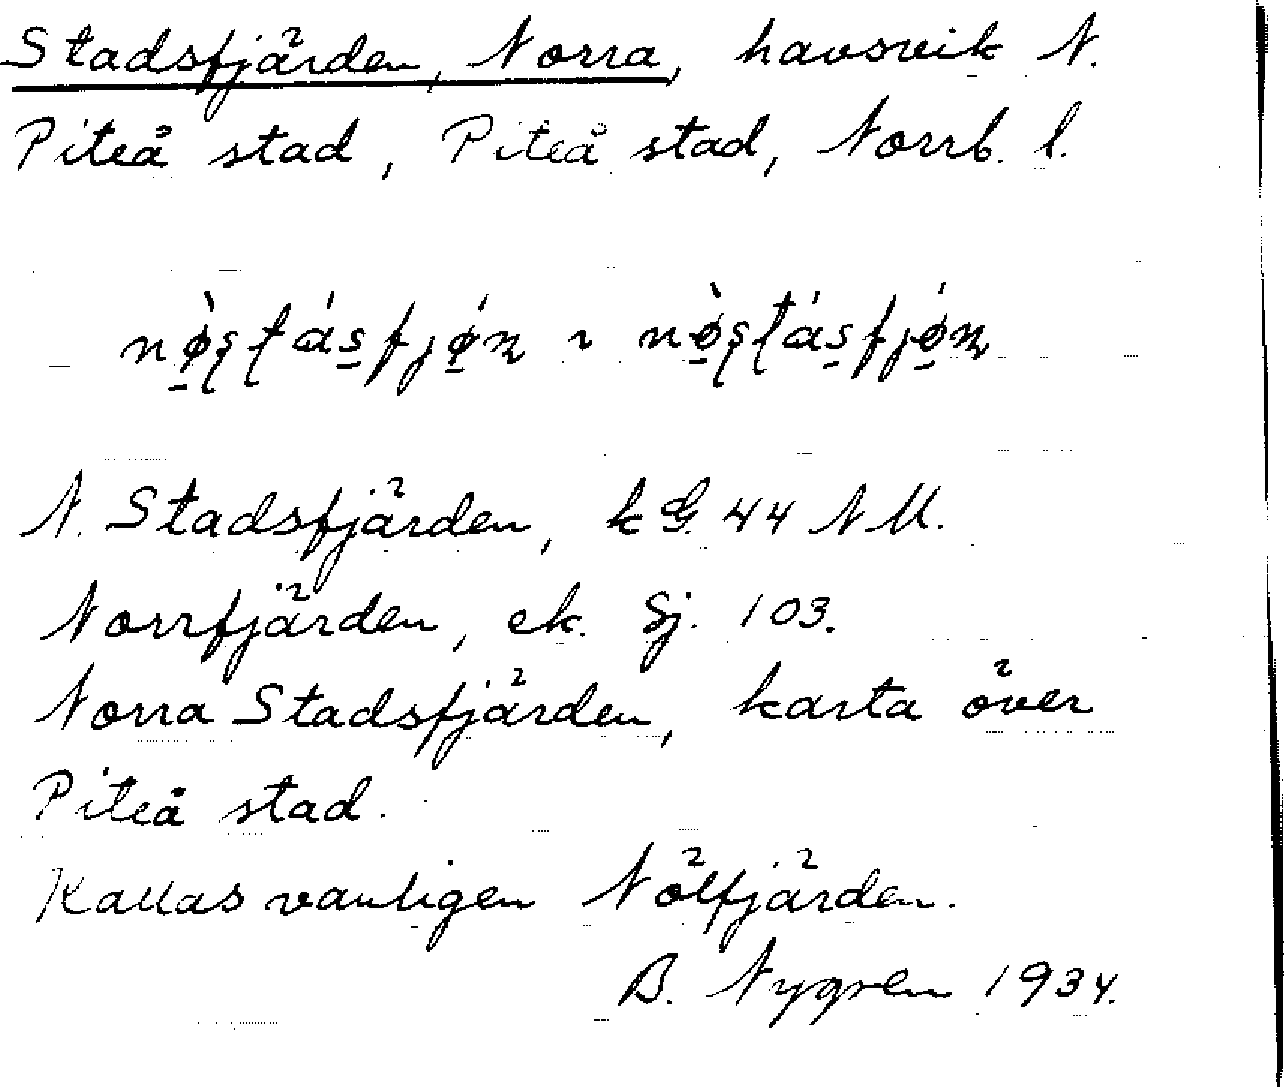 Stadsfjärden, Norra, havsvik N.
Piteå stad, Piteå stad, Norrb. l.
N. Stadsfjärden, kG. 44 NM.
Norrfjärden, ek. Sj. 103.
Norra Stadsfjärden, karta över
Piteå stad.
Kallas vanligen Nölfjärden.
B. Nygren 1934.